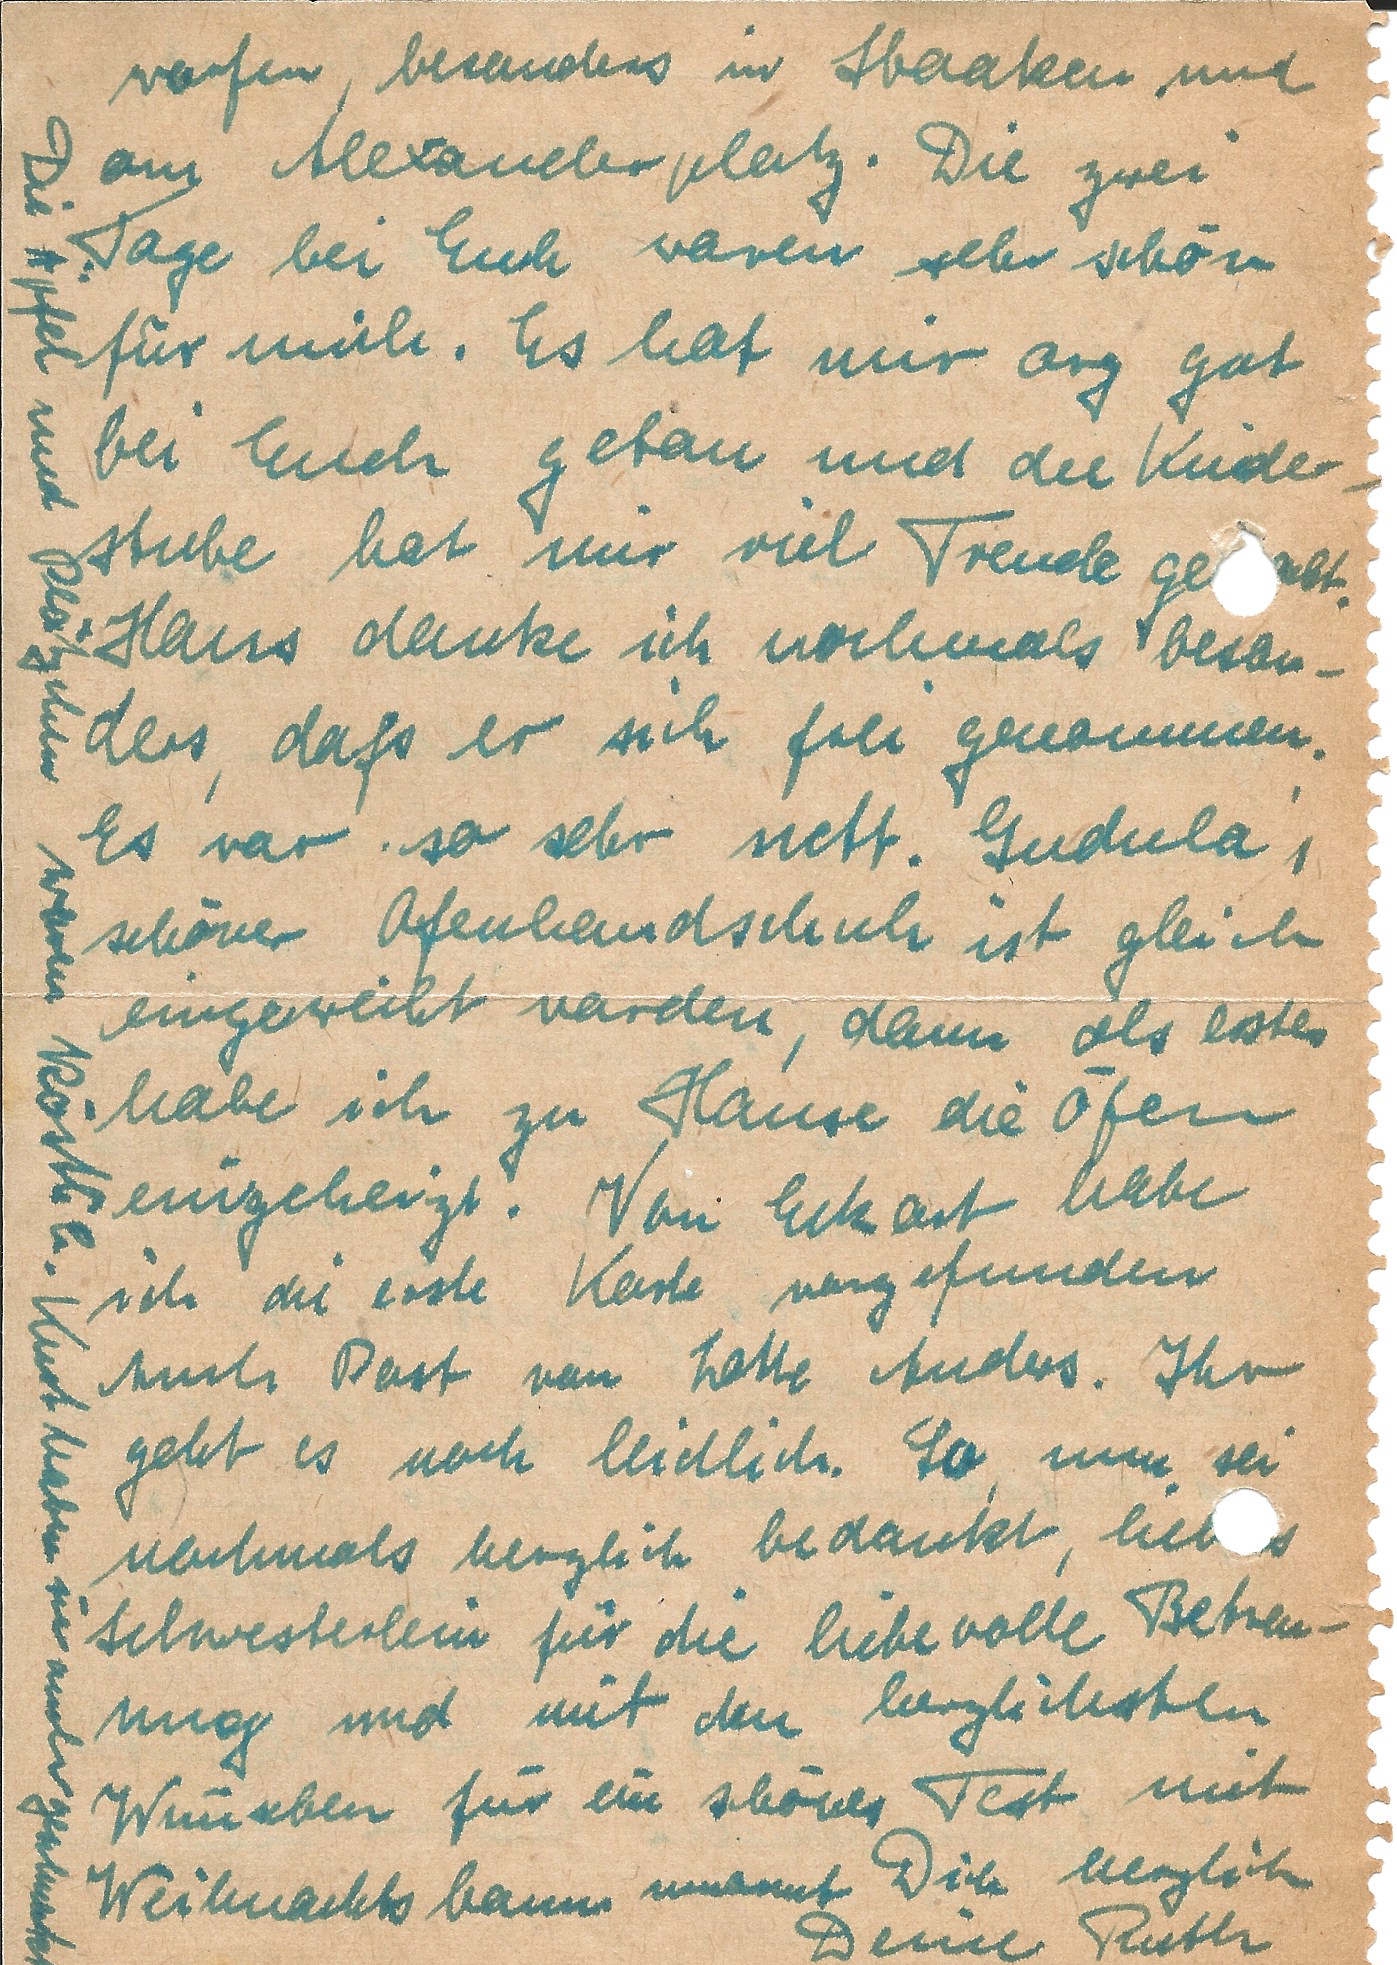 worfen, besonders in Staaken und
am Alexanderplatz. Die zwei
Tage bei Euch waren sehr schön
für mich. Es hat mir arg gut
bei Euch getan und die Kinder-
stube hat mir viel Freude ge acht.
Hans danke ich nochmals beson-
ders, daß er sich frei genommen.
Es war so sehr nett. Gudula's
schöner Ofenhandschuh ist gleich
eingeweiht worden, denn als erstes
habe ich zu Hause die Öfen
eingeheizt. Von Eckart habe
ich die erste Karte vorgefunden
Auch Post von Lotte Anders. Ihr
geht es noch leidlich. So, nun sei
nochmals herzlich bedankt, liebes
Schwesterlein für die liebevolle Betreu-
ung und mit den herzlichsten
Wünschen für ein schönes Fest mit
Weihnachtsbaum umarmt Dich herzlich
Deine Ruth
Die Äpfel und Plätzchen waren köstlich. Und haben mir